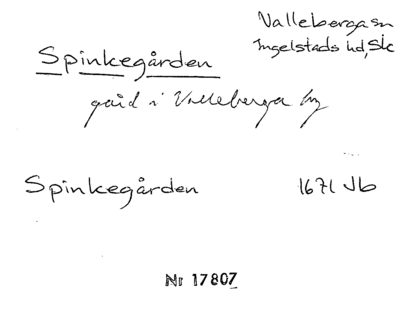 Valleberga sn
Ingelstads hd, Sk
Spinkegården
gård i Valleberga by
Spinkegården 1671 Jb
Nr 17807